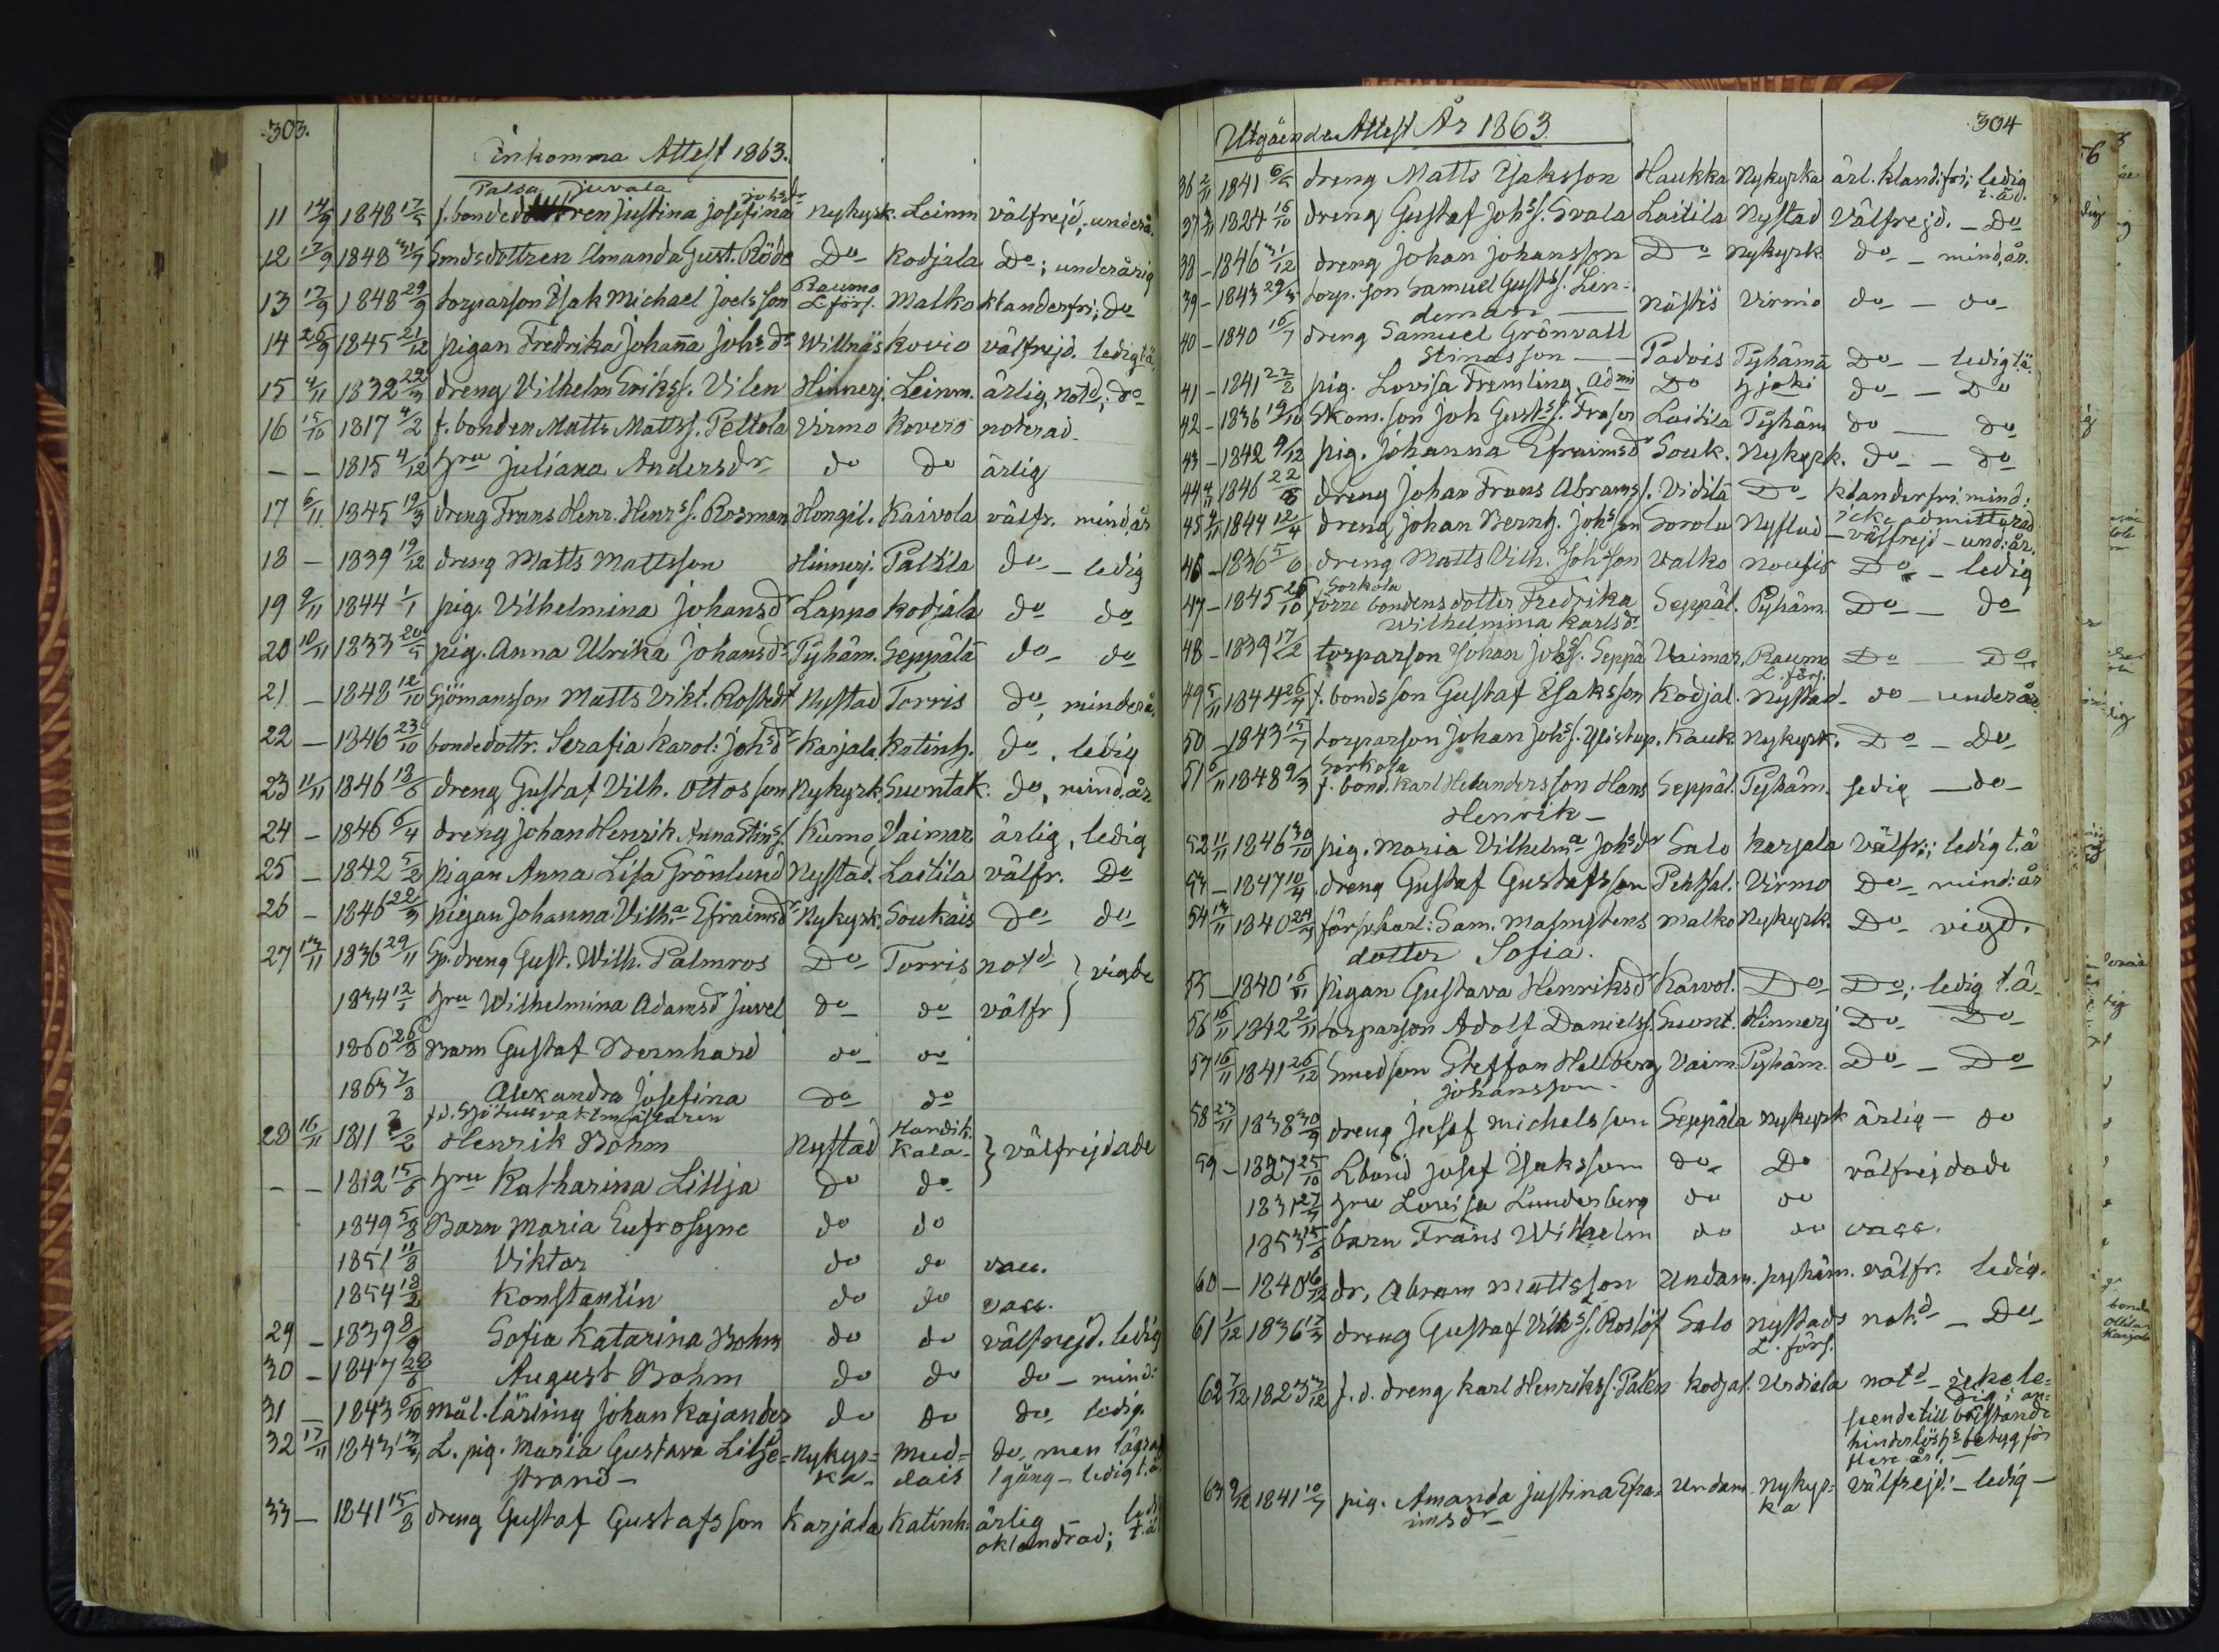 303.
Inkomna Attest 1863.
Palsa Juvala Johsdr
11 14/9 1848 17/5 f. bondedottren Justina Josefina Nykyrk. Leinm välfrejd, underå.
12 17/9 1848 31/7 Smdsdottren Amanda Gust. Röda Do Kodjala Do; underårig
13 17/9 1848 29/9 torparson Isak Michael Joelsson Raumo L. förs. Malko klanderfri; do
14 26/9 1845 21/12 pigan Fredrika Johana Johs dr Willnäs Kovio välfrejd. ledig tä
15 4/11 1832 22/3 dreng Vilhelm Erikss. Vilen Hinnerj. Leinm. ärlig, notd; do
16 15/10 1817 4/2 f. bonden Matts Mattss. Peltola Virmo Kovero noterad
– – 1815 4/12 hru Juliana Andersdr do do ärlig
17 6/11 1845 19/3 dreng Frans Henr. Henrss. Rosman Hongil. Kaivola välfr. mind.år
18 – 1839 19/12 dreng Matts Mattsson Hinnerj. Paltila do – ledig
19 9/11 1844 1/1 pig. Vilhelmina Johansdr Lappo Kodjala do do
20 10/11 1833 20/5 pig. Anna Ulrika Johansdr Pyhäm. Seppälä do – do
21 – 1848 12/10 Sjömansson Matts Vikt. Rostedt Nystad Torris do, minderå.
22 – 1846 23/10 bondedottr. Serafia Karol: Johsdr Karjala Katinh. do, ledig
23 11/11 1846 18/6 dreng Gustaf Vilh. Ottosson Nykyrk. Suontak. do, mind.år
24 – 1846 6/4 dreng Johan Henrik AnnaStinss. Kumo, Vaimar ärlig, ledig
25 – 1842 5/2 pigan Anna Lisa Grönlund Nystad. Laitila välfr. Do
26 – 1846 22/3 pigan Johanna Vilha Efraimsdr Nykyrk. Soukais Do do
27 13/11 1836 29/11 Sp. dreng Gust. Wilh. Palmros Do Torris notd } vigde
1834 12/1 hru Wilhelmina Adamsd Juvel do do välfr }
1860 26/8 Barn Gustaf Bernhard do do
1863 7/8 Alexandra Josefina do do
f.d. Sjötullvaktmästaren
28 16/11 1811 2/2 Henrik Bohm Nystad Handik. Kala- } välfrejdade
– – 1812 15/6 hru Katharina Lillja do do
1849 5/8 Barn Maria Eufrosyne do do
1851 11/8 Viktor do do vacc.
1854 18/2 Konstantin do do vacc.
29 – 1839 8/9 Sofia Katarina Bohm do do välfrejd. ledig
30 – 1847 28/6 August Bohm do do do – mind:
31 – 1843 6/10 mål. lärling Johan Kajander do do do ledig.
32 17/11 1843 13/3 L. pig. Maria Gustava Lilje= Nykyr= Mud= do, men lägrad
strand – ka- dais 1 gång – ledig t.ä.
33 – 1841 15/8 dreng Gustaf Gustafsson Karjala Katinh. ärlig ledig
oklandrad; t.ä
304
Utgående Attest År 1863
36 2/11 1841 6/5 dreng Matts Isaksson Haukka Nykyrka ärl. klandifri; ledig
t. äd.
37 3/11 1824 16/10 dreng Gustaf Johss. Svala Laitila Nystad Välfrejd. – Do
38 – 1846 31/12 dreng Johan Johansson Do Nykyrk do – mind.år.
39 – 1843 29/3 torp. son Samuel Gustss. Lin-
deman – Nästis Virmo do – do
40 – 1840 16/7 dreng Samuel Grönvall
Stinasson – Padois Pyhämä Do – ledig tä.
41 – 1841 22/2 pig. Lovisa Fremling, Admi Do Hjoki do – Do
42 – 1836 19/10 Skom. son Joh Gustss. Fraser Laitila Pyhäm do – do
43 – 1842 9/12 pig. Johanna Efraimsd Souk. Nykyrk. do – do
44 4/11 1846 22/8 dreng Johan Frans Abramss. Vidilä Do klanderfri. mind:
icke admitterad
45 4/11 1844 12/4 dreng Johan Bernh. Johsson Sorola Nystad – välfrejd – und:år.
46 – 1836 5/6 dreng Matts Vilh. Johsson Valko Nousis Do – ledig
Sorkola
47 – 1845 26/10 förre bondens dotter Fredrika Seppäl. Pyhäm. Do – do
Wilhelmina Karlsd.
48 – 1839 17/2 torparson Johan Johss. Seppä Vaimar. Raumo Do – Do
L. förs.
49 5/11 1844 26/7 f. bondsson Gustaf Isaksson Kodjal. Nystad – do – underår
50 – 1843 15/7 torparson Johan Johss. Ylistup. Kauk. Nykyrk. Do – Do
Sorkola
51 6/11 1848 9/3 f. bond. Karl Helandersson Hans Seppäl. Pyhäm. ledig – do –
Henrik –
52 11/11 1846 30/10 pig. Maria Vilhelma Johsdr Salo Karjala Välfr.; ledig t.ä
53 – 1847 10/4 dreng Gustaf Gustafsson Pehtjal. Virmo Do – mind:år
54 13/11 1840 24/4 försv.karl: Sam. Malmstens Malko Nykyrk. Do – vigd.
dotter Sofia.
55 – 1840 16/11 pigan Gustava Henriksd Kaivol. Do Do; ledig t.ä.
56 16/11 1842 2/11 torparson Adolf Danielss. Suont. Hinnerj Do – Do
57 16/11 1841 26/12 Smedson Steffan Hellberg Vaim. Pyhäm. Do – Do
Johansson
58 23/11 1838 30/9 dreng Josef Michelsson Seppälä Nykyrk ärlig – do
59 – 1827 25/10 Lbond Josef Isaksson do Do välfrejdade
1831 27/7 hru Lovisa Lundesberg do do
1853 15/6 barn Frans Wilhelm do do vacc.
60 – 1840 16/12 dr. Abram Mattsson Undam. pyhäm. välfr. ledig.
61 1/12 1836 17/3 dreng Gustaf Vilhss. Roslöf Salo Nystads notd – Do
L. förs.
62 7/12 1823 3/12 f. d. dreng Karl Henrikss. Palén Kodjal. Urdiala notd – icke le=
dig; an=
seende till bristande
hinderlöshs betyg för
flere år. –
63 9/12 1841 10/7 pig. Amanda Justina Efra= Undam Nykyr= välfrejd: – ledig –
imsdr – ka